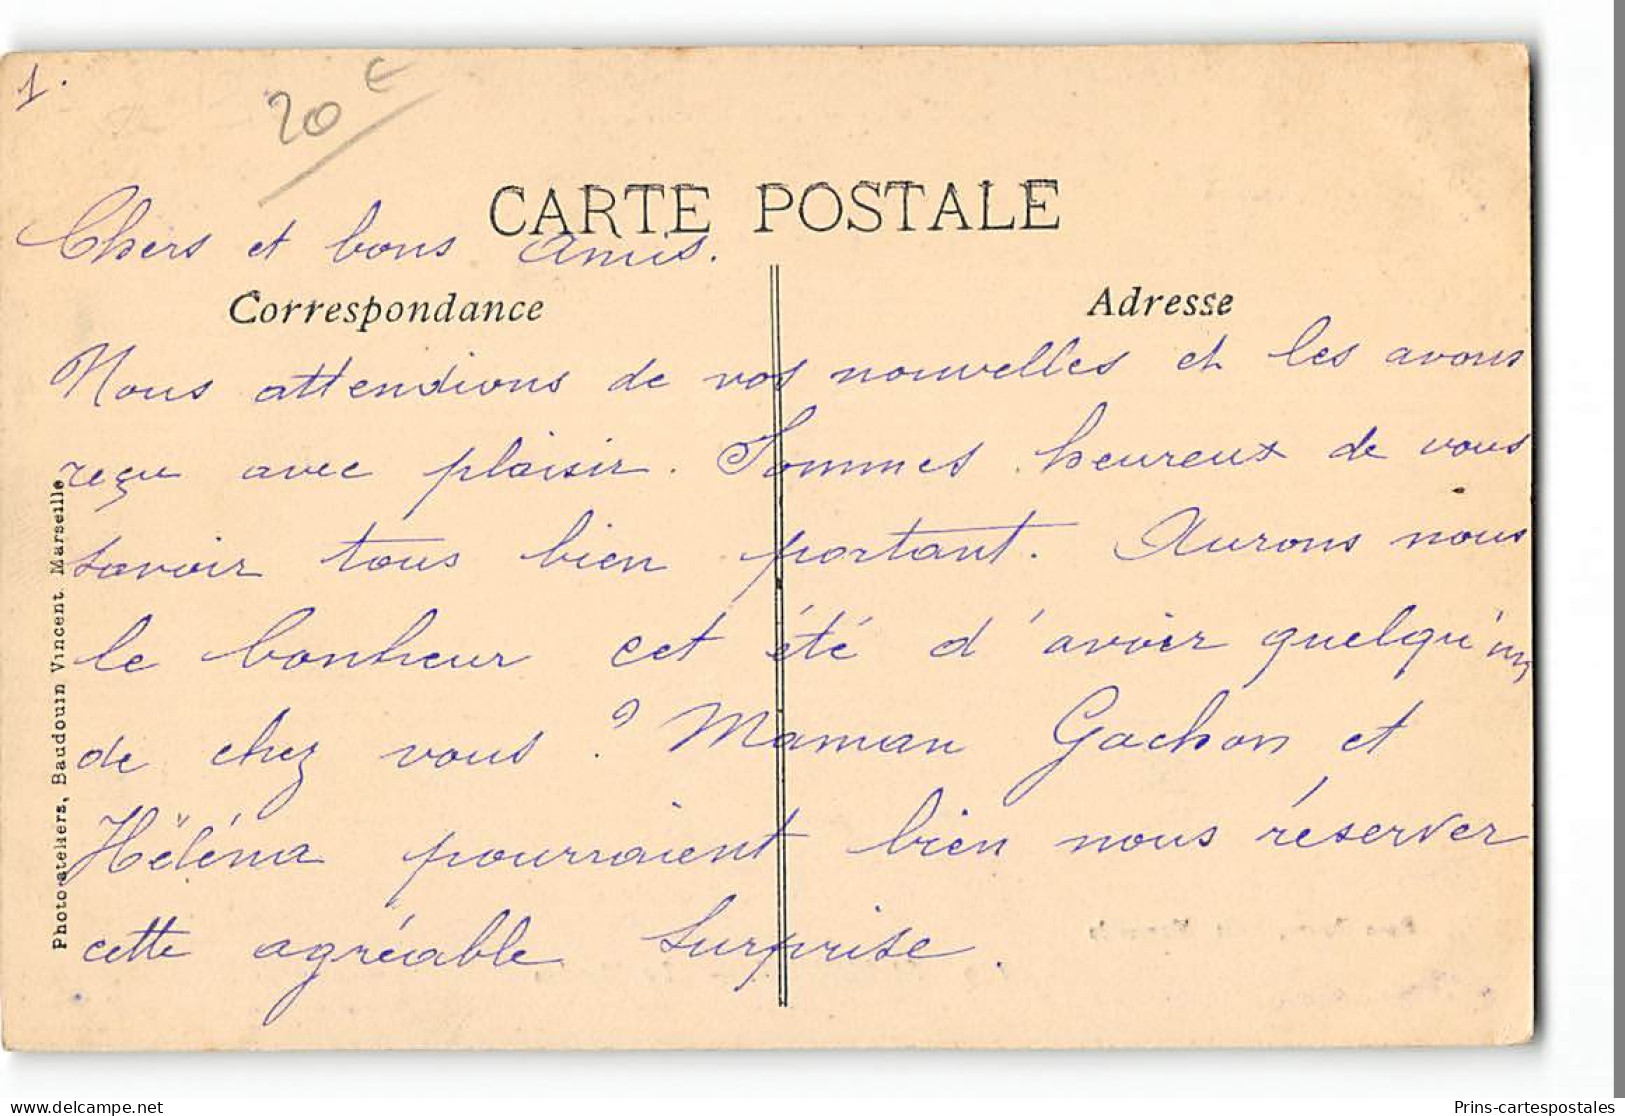 1.
20€
CARTE POSTALE
Chers et bons amis.
Correspondance
Adresse
Nous attendions de vos nouvelles et les avons
reçu avec plaisir. Sommes heureux de vous
savoir tous bien portant. Aurons nous
le bonheur cet été d'avoir quelqu'un
de chez vous ? Maman Gachon et
Héléna pourraient bien nous réserver
cette agréable surprise.
Photo-ateliers, Baudouin Vincent. Marseille
delcampe.net
Prins-cartespostales